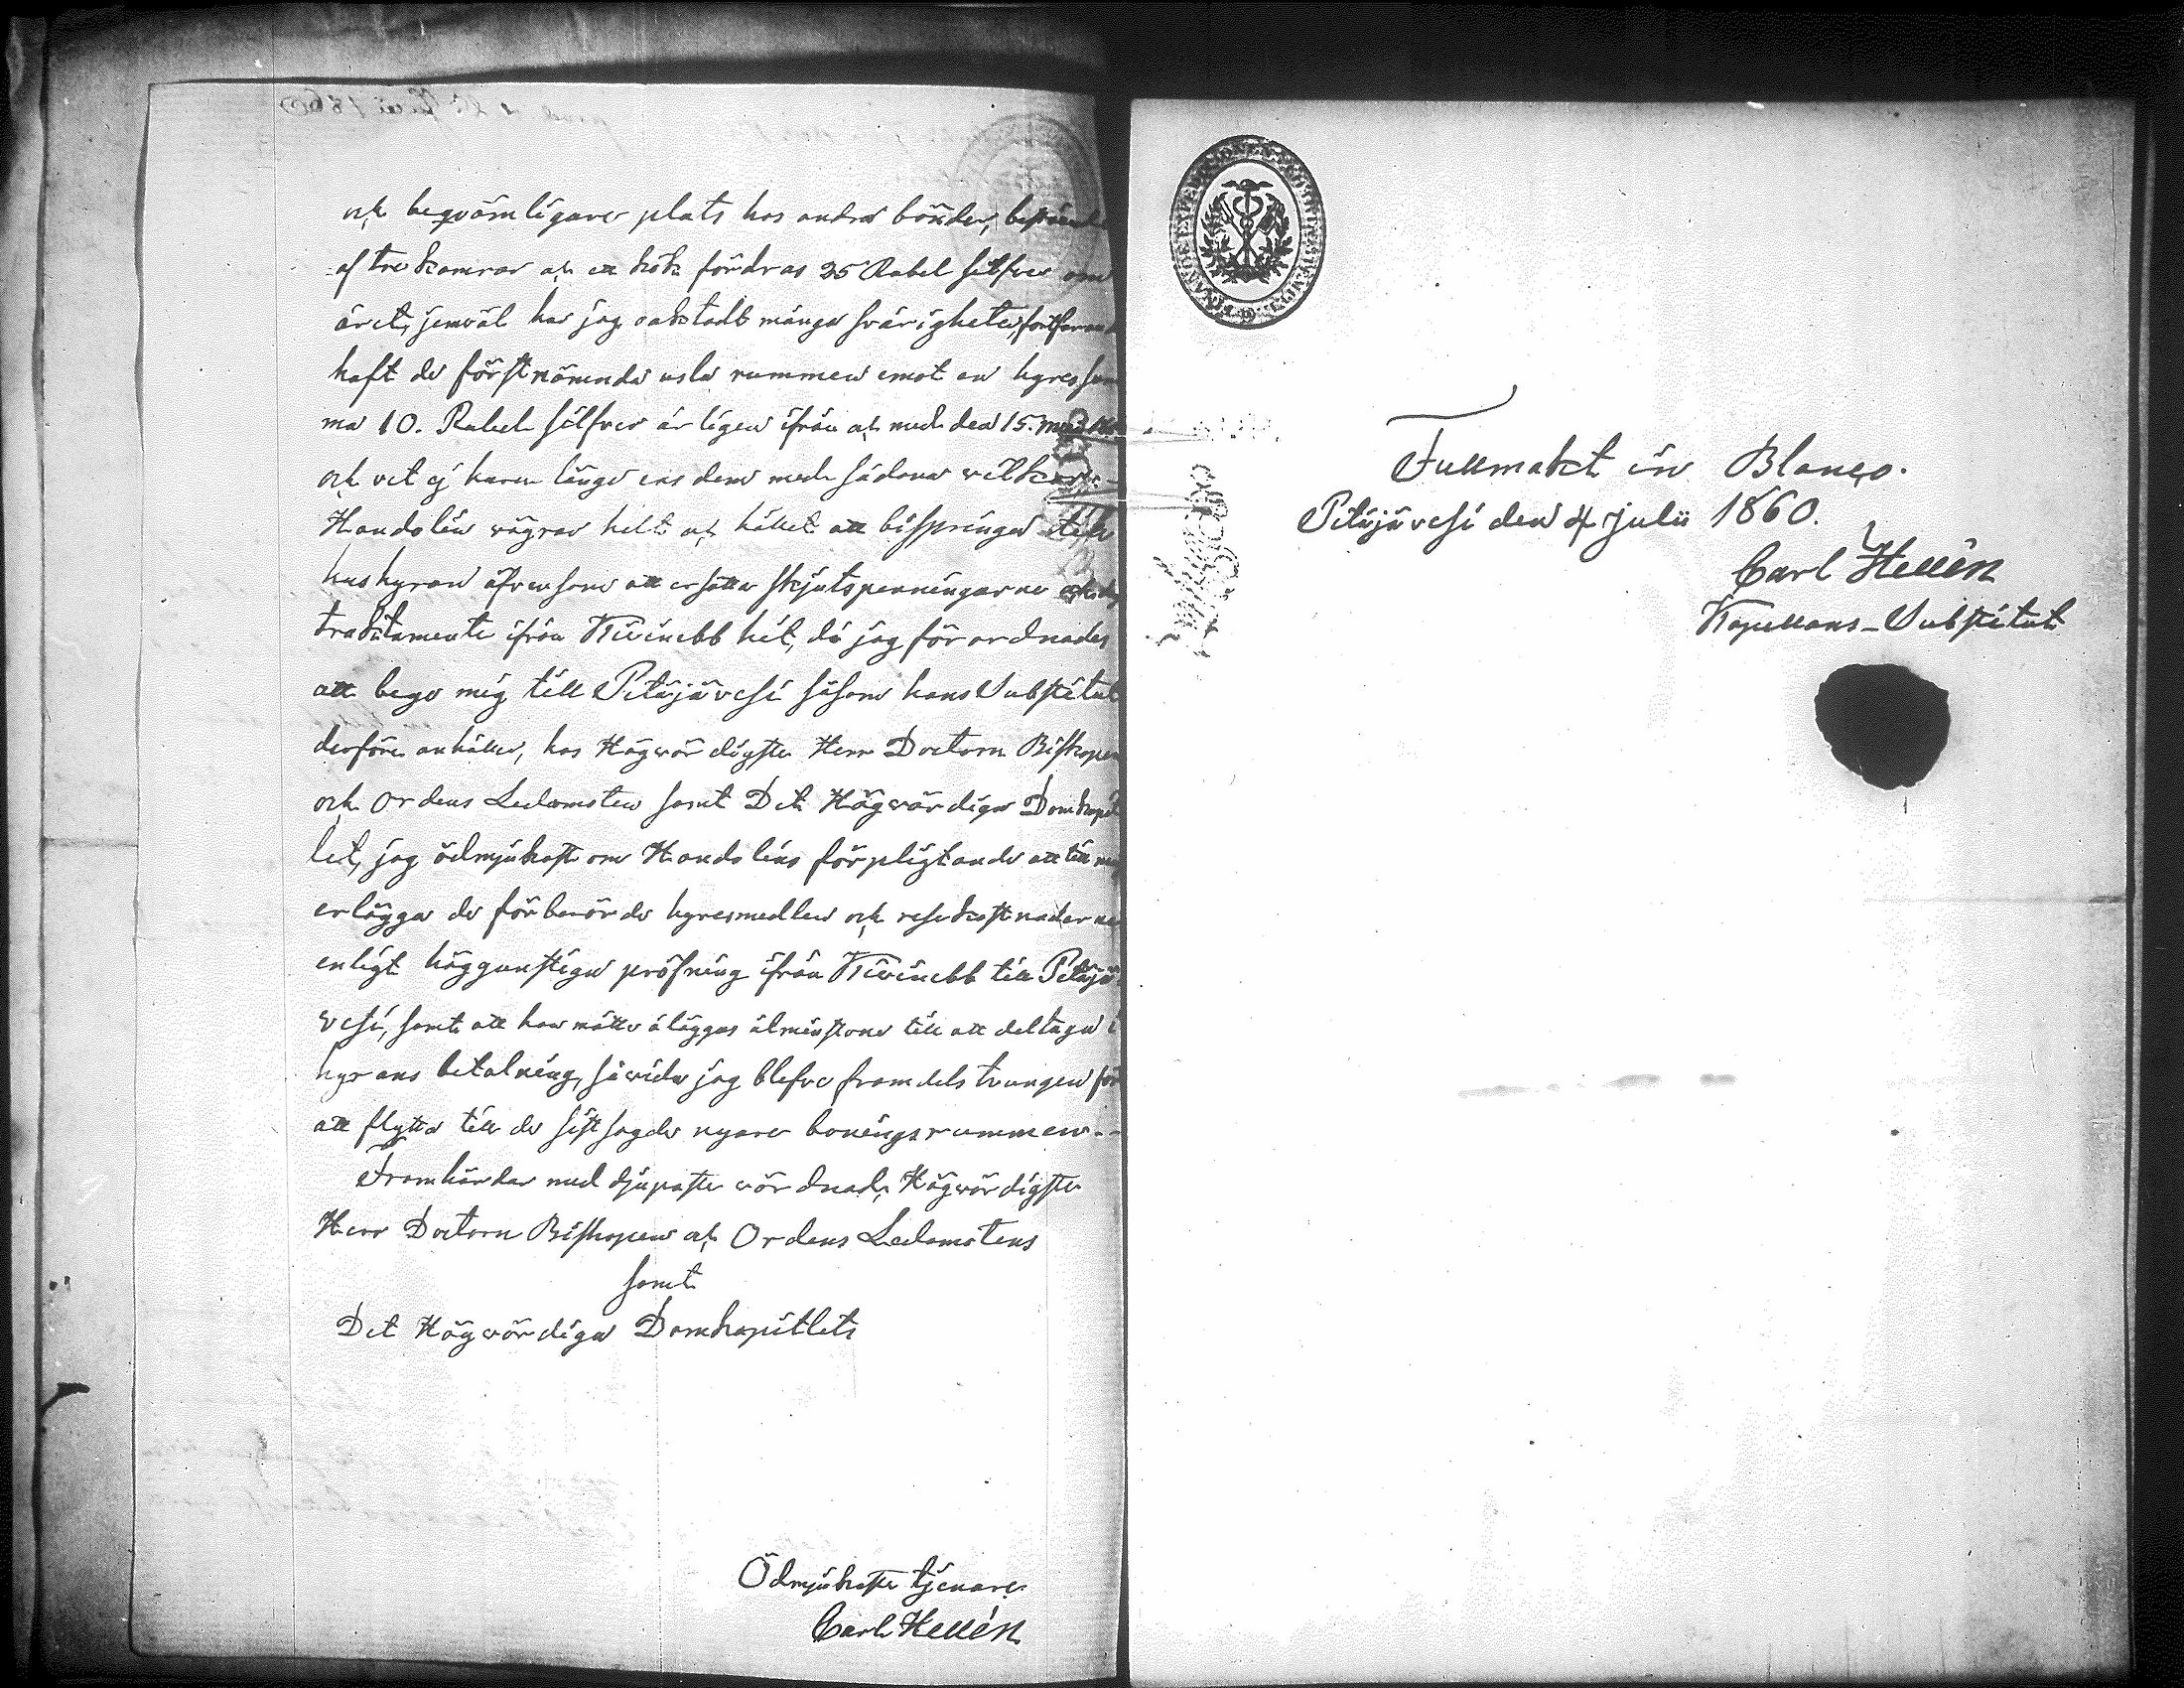 och beqvämligare plats hos andra bönder, bestående
af tre kamrar och ett kök fordras 25 Rubel silfver om
året, jemväl har jag oaktadt många svårigheter, fortfarande
haft de förstnämnda usla rummen emot en hyressum
ma 10. Rubel silfver årligen ifrån och med den 15. Maji
och vet ej huru länge ens dem med sådana vilkor.
Handolin vägrar helt och hållet att bispringa till
hushyran äfvensom att ersätta skjutspenningarne och
traktamente ifrån Kivinebb hit, då jag förordnades
att bege mig till Petäjävesi såsom hans Substitut
derföre anhåller, hos Högvördigste Herr Doctorn Biskopen
och Ordens Ledamoten samt Det Högvördiga Domkapit
let, jag ödmjukast om Handolins förpligtande att till mig
erlägga de förberörde hyresmedlen och resekostnaderne
enligt höggunstiga pröfning ifrån Kivinebb till Petäjä
vesi, samt att han måtte åläggas åtminstone till att deltaga i
hyrans betalning, såvida jag blefve framdels tvungen för
att flytta till de sistsagde nyare boningsrummen.-
Framhärdar med djupaste vördnad, Högvördigste
Herr Doctorn Biskopen och Ordens Ledamotens
samt
Det Högvördiga Domkapitlets
Ödmjukaste tjenare
Carl Hellén
Fullmakt in Blanco.
Petäjävesi den 4 Julii 1860.
Carl Hellén
Kapellans-Substitut